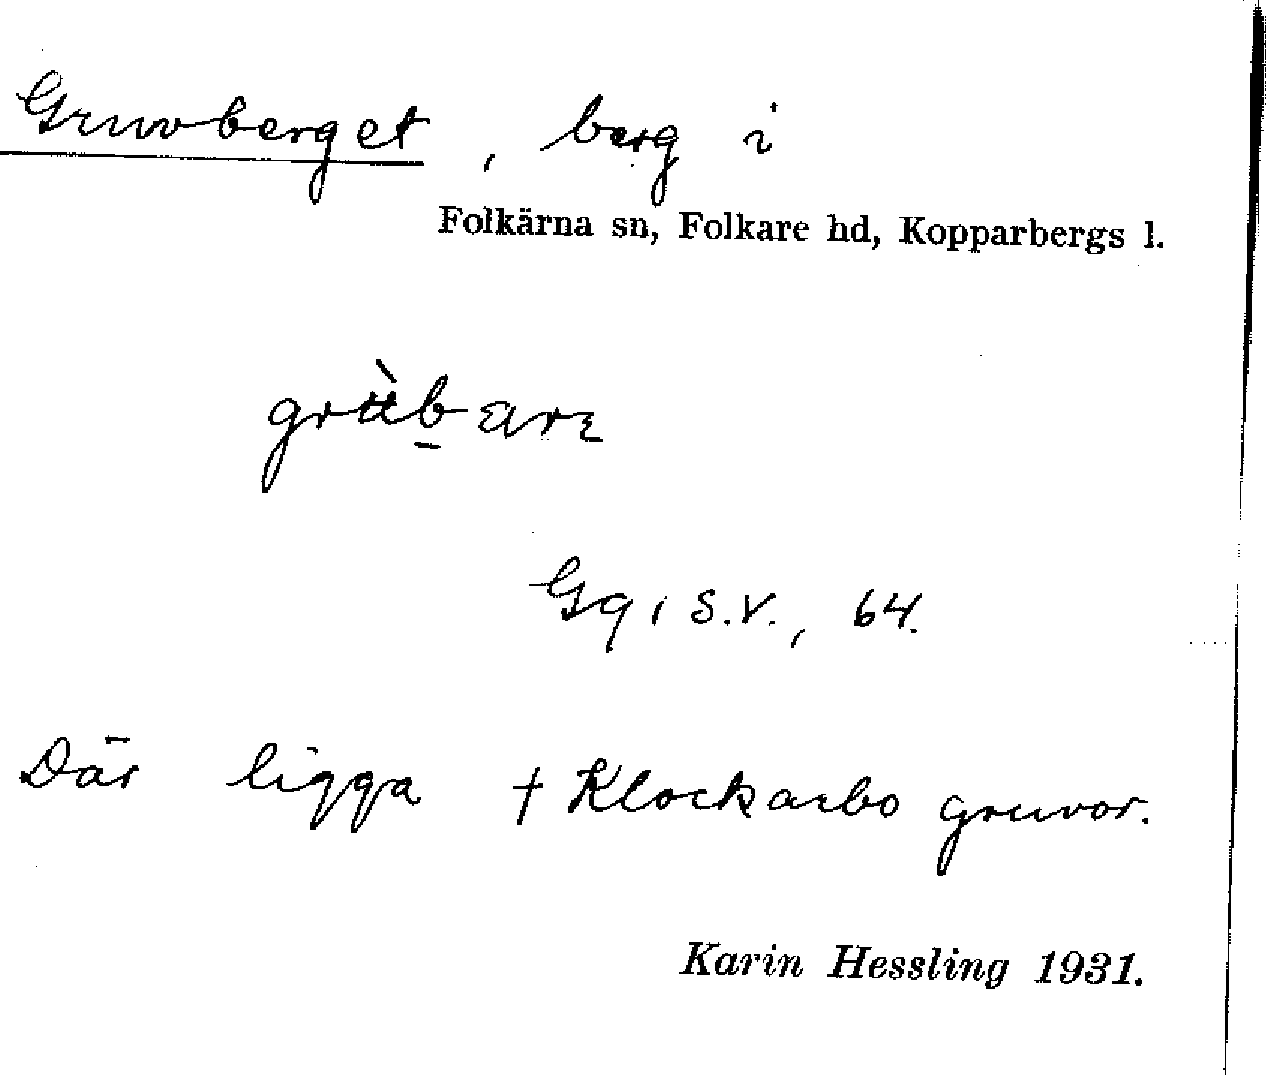 Gruvberget, berg i
Folkärna sn, Folkare hd, Kopparbergs l.
Gq i S.V., 64.
Där ligga † Klockarbo gruvor.
Karin Hessling 1931.